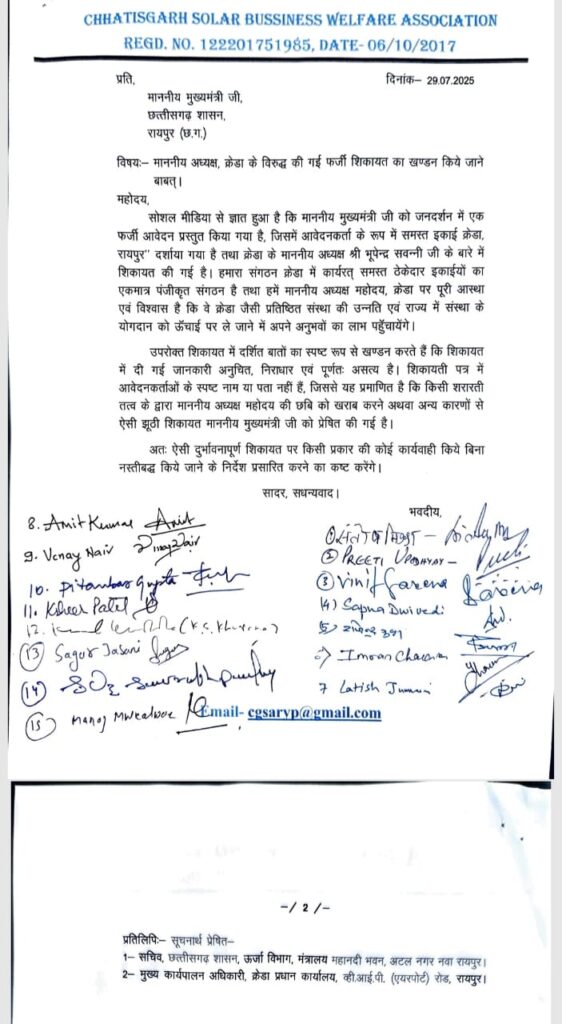 CHHATISGARH SOLAR BUSSINESS WELFARE ASSOCIATION
REGD. NO. 122201751985, DATE- 06/10/2017
प्रति, दिनांक– 29.07.2025
माननीय मुख्यमंत्री जी,
छत्तीसगढ़ शासन,
रायपुर (छ.ग.)
विषयः– माननीय अध्यक्ष, क्रेडा के विरुद्ध की गई फर्जी शिकायत का खण्डन किये जाने
बाबत्।
महोदय,
सोशल मीडिया से ज्ञात हुआ है कि माननीय मुख्यमंत्री जी को जनदर्शन में एक
फर्जी आवेदन प्रस्तुत किया गया है, जिसमें आवेदनकर्ता के रूप में समस्त इकाई क्रेडा,
रायपुर" दर्शाया गया है तथा क्रेडा के माननीय अध्यक्ष श्री भूपेन्द्र सवन्नी जी के बारे में
शिकायत की गई है। हमारा संगठन क्रेडा में कार्यरत् समस्त ठेकेदार इकाईयों का
एकमात्र पंजीकृत संगठन है तथा हमें माननीय अध्यक्ष महोदय, क्रेडा पर पूरी आस्था
एवं विश्वास है कि वे क्रेडा जैसी प्रतिष्ठित संस्था की उन्नति एवं राज्य में संस्था के
योगदान को ऊँचाई पर ले जाने में अपने अनुभवों का लाभ पहुँचायेंगे।
उपरोक्त शिकायत में दर्शित बातों का स्पष्ट रूप से खण्डन करते हैं कि शिकायत
में दी गई जानकारी अनुचित, निराधार एवं पूर्णतः असत्य है। शिकायती पत्र में
आवेदनकर्ताओं के स्पष्ट नाम या पता नहीं हैं, जिससे यह प्रमाणित है कि किसी शरारती
तत्व के द्वारा माननीय अध्यक्ष महोदय की छबि को खराब करने अथवा अन्य कारणों से
ऐसी झूठी शिकायत माननीय मुख्यमंत्री जी को प्रेषित की गई है।
अतः ऐसी दुर्भावनापूर्ण शिकायत पर किसी प्रकार की कोई कार्यवाही किये बिना
नस्तीबद्ध किये जाने के निर्देश प्रसारित करने का कष्ट करेंगे।
सादर, सधन्यवाद।
भवदीय,
① संतोष मिश्रा –
② PREETI UPADHYAY –
③ Vinit Saxena
(4) Sapna Dwivedi
6) Imran
7 Latish
8. Amit Kumar Amit
9. Vinay Nair Vinay Nair
10. Pitambar Gupta
11. Patel
12. (K.S.
(13) Sagar Jasani Sagar
(14)
(15) Manoj
Email- cgsarvp@gmail.com
-/ 2 /-
प्रतिलिपिः– सूचनार्थ प्रेषित–
1– सचिव, छत्तीसगढ़ शासन, ऊर्जा विभाग, मंत्रालय महानदी भवन, अटल नगर नवा रायपुर।
2– मुख्य कार्यपालन अधिकारी, क्रेडा प्रधान कार्यालय, व्ही.आई.पी. (एयरपोर्ट) रोड, रायपुर।